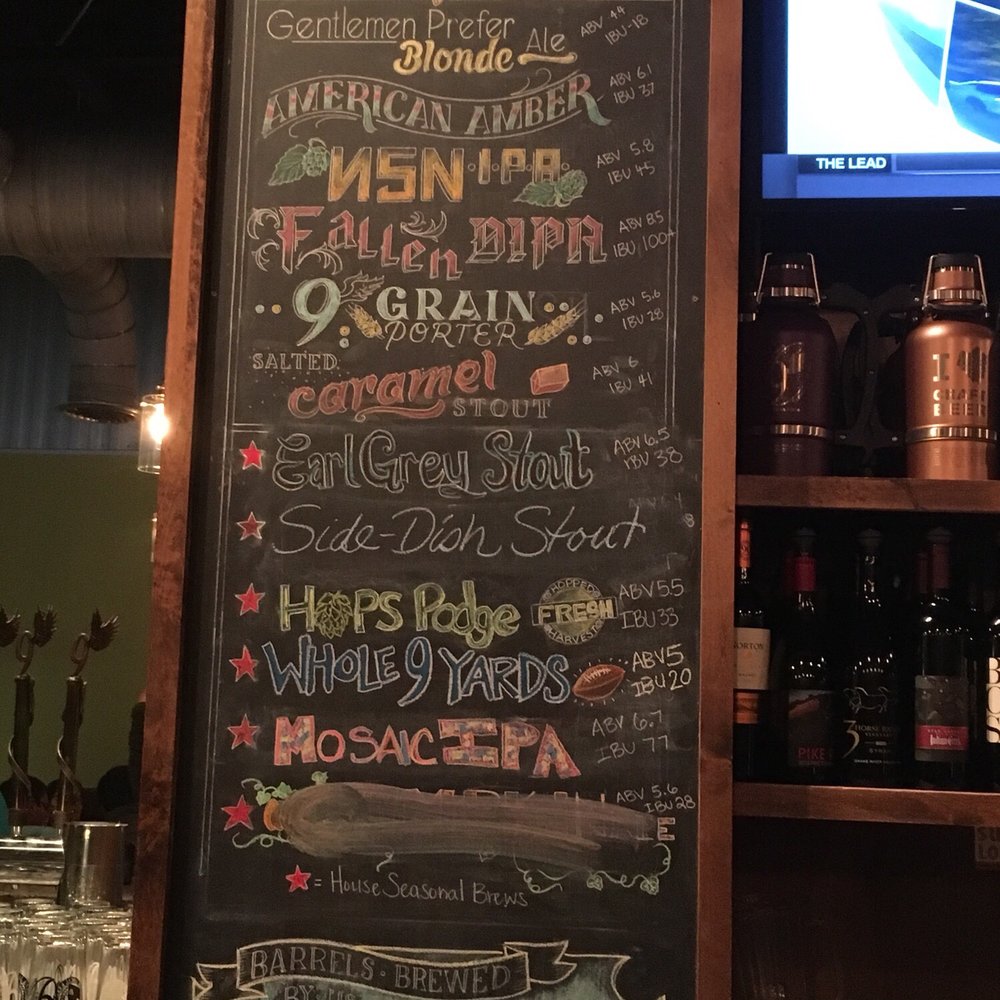 Gentlemen Prefer
Blonde Ale
ABV 4.4
IBU-18
AMERICAN AMBER
ABV 6.1
IBU 37
NSN I.P.A.
ABV 5.8
IBU 45
Fallen DIPA
ABV 8.5
IBU 100+
9 GRAIN
PORTER
ABV 5.6
IBU 28
SALTED
caramel
STOUT
ABV 6
IBU 41
Earl Grey Stout
ABV 6.5
IBU 38
Side-Dish Stout
HOPS Podge
HOPPED
FRESH
HARVEST
ABV 5.5
IBU 33
WHOLE 9 YARDS
ABV 5
IBU 20
MOSAIC IPA
ABV 6.7
IBU 77
ABV 5.6
IBU 28
E
= House Seasonal Brews
BARRELS · BREWED
BY · US
THE LEAD
I
CRAFT
BEER
PIKE
3
HORSE